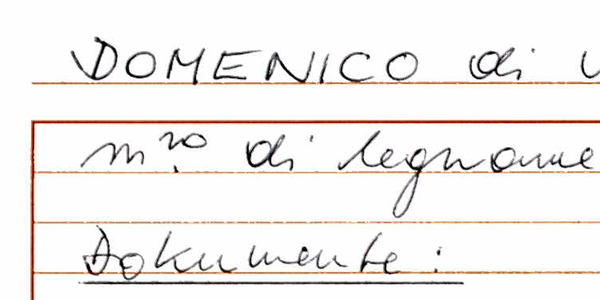 DOMENICO di
m.ro di legname
Dokumente: